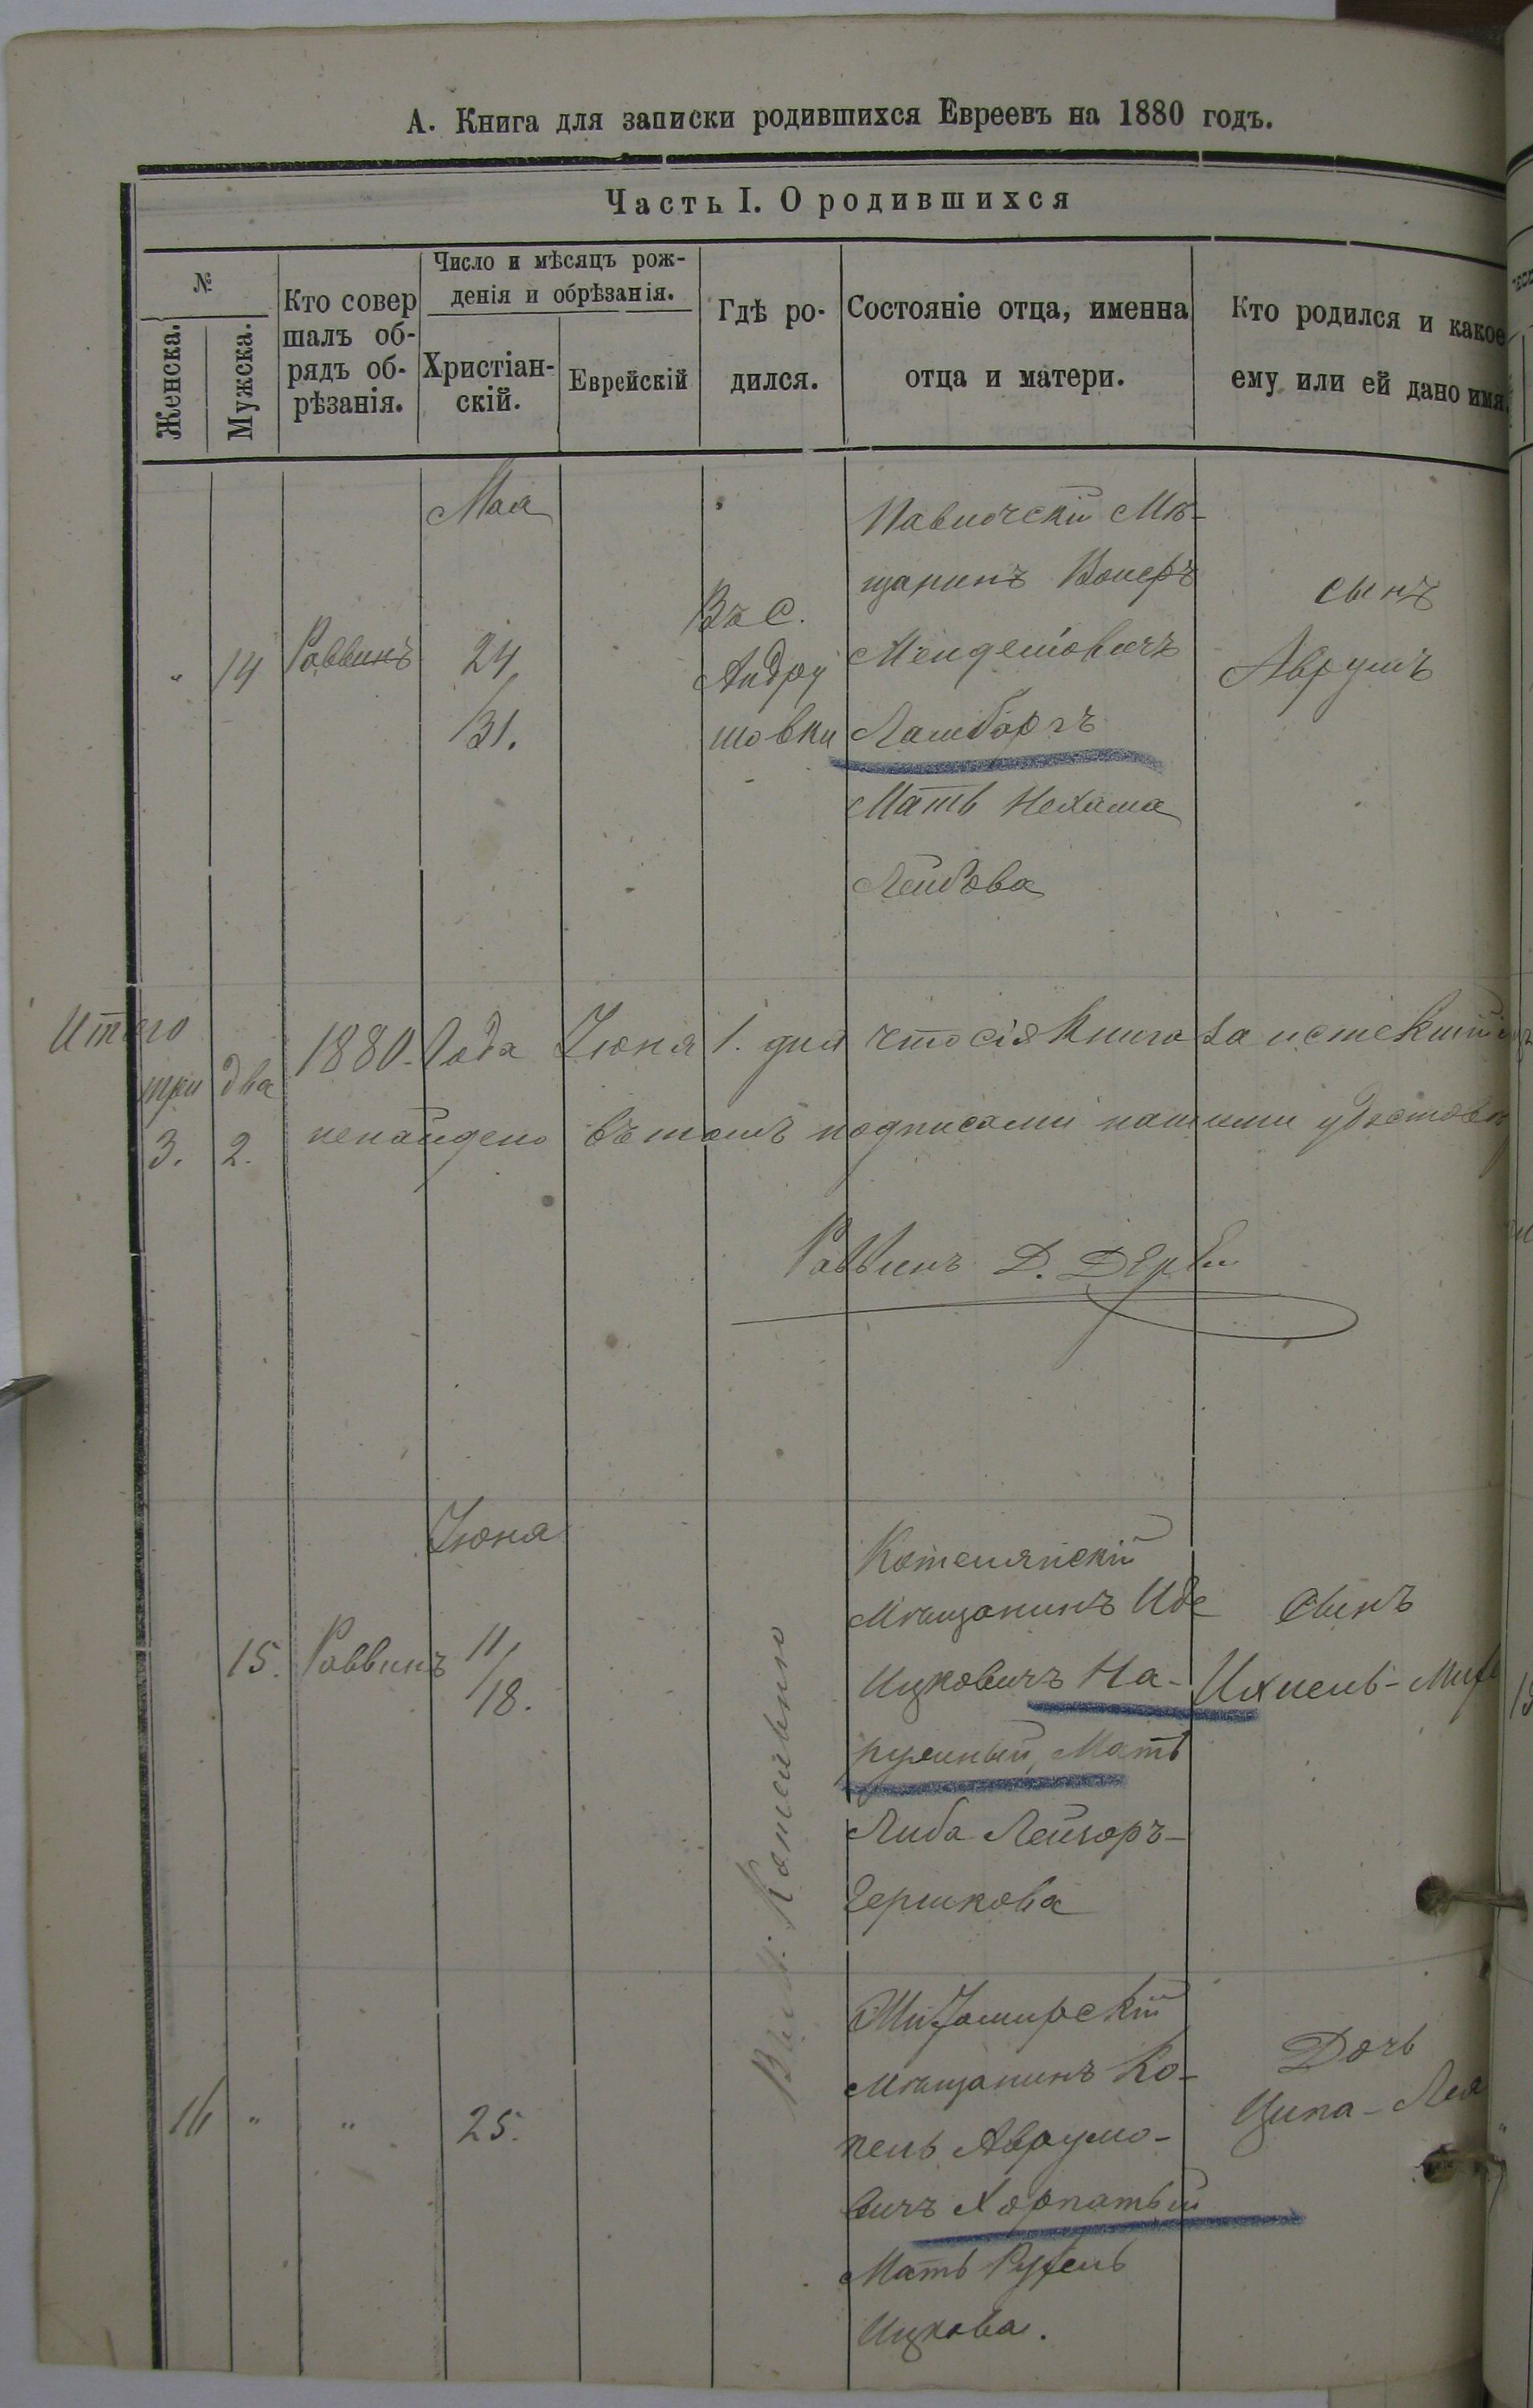 А. Книга для записки родившихся Евреевъ на 1880 годъ.
Часть I. О родившихся
№
Женска.
Мужска.
Кто совер
шалъ об-
рядъ об-
рѣзанія.
Число и мѣсяцъ рож-
денія и обрѣзанія.
Христіан-
скій.
Еврейскій
Гдѣ ро-
дился.
Состояніе отца, именна
отца и матери.
Кто родился и какое
ему или ей дано имя.
„
14
Раввинъ
Мая
24
31.
Въ С.
Андру
шовки
Паволочскій Мѣ-
щанинъ
Менделіовичъ
Ламбергъ
Мать Нехама
Лейбова
сынъ
Аврумъ
Итого
три два
3. 2.
1880. Года Іюня 1. дня что сія Книга за истекшій
ненайдено въ томъ подписами нашими удостовѣ
Раввинъ Д.
15.
Раввинъ
Іюня
11
18.
В М. Котельнѣ
Котелянскій
Мѣщанинъ Иде
Ицковичъ На-
ружный, Мать
Либа Лейзоръ-
Гершкова
Сынъ
Ихиель-
16
„
„
25.
Житомирскій
Мѣщанинъ Ко-
пель Аврумо-
вичъ Харпатый
Мать Рухель
Ицкова.
Дочь
Ципа-Лея